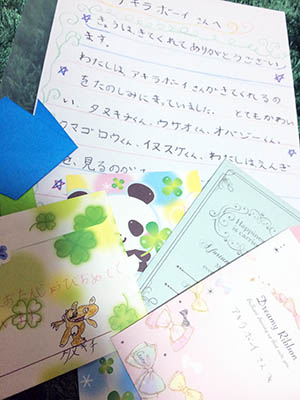 アキラボーイさんへ
きょうは、きてくれてありがとうござい
ます。
わたしは、アキラボーイさんがきてくれるの
をたのしみにまっていました。とてもかわい
い、タヌキチくん、ウサオくん、オバジーくん、
クマゴロウくん、イヌスケくん、わたしは、えんぎ
を、見るのが
Happiness
is carrie
Dreamy Ribbon
アキラボーイさんへ